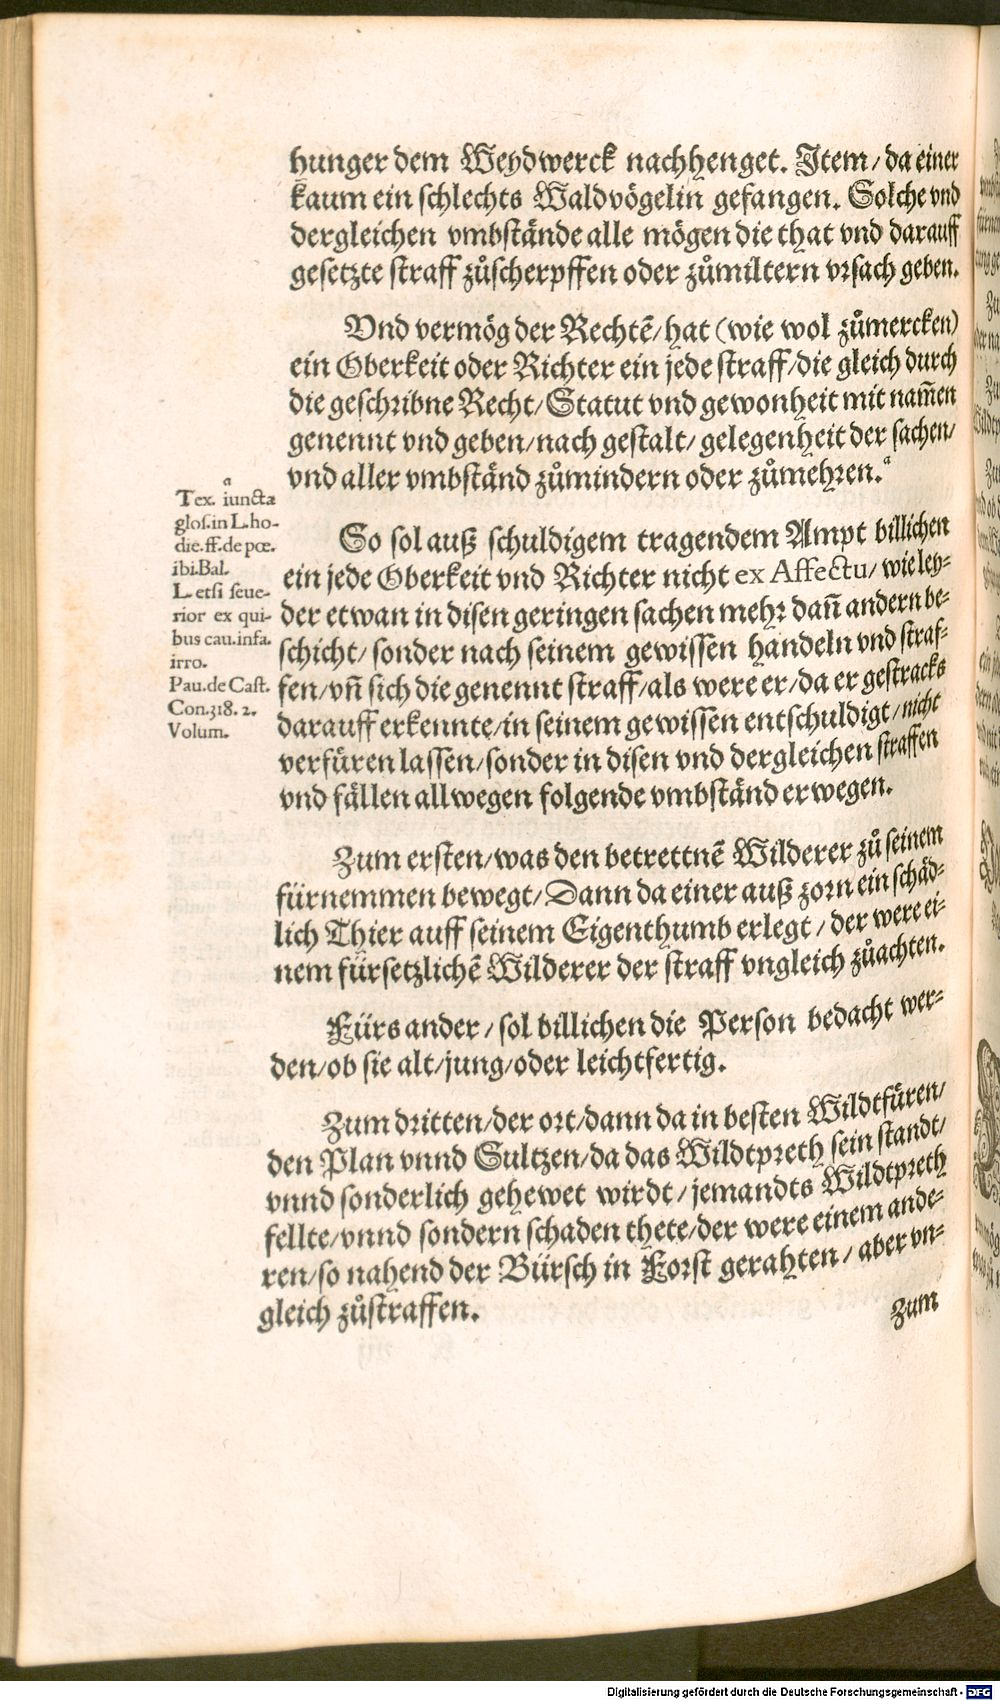 hunger dem Weydwerck nachhenget. Item/ da einer
kaum ein schlechts Waldvögelin gefangen. Solche vnd
dergleichen vmbstände alle mögen die that vnd darauff
gesetzte straff zůscherpffen oder zůmiltern vrsach geben.
Vnd vermög der Rechtē/ hat (wie wol zůmercken)
ein Oberkeit oder Richter ein jede straff/ die gleich durch
die geschribne Recht/ Statut vnd gewonheit mit nam̄en
genennt vnd geben/ nach gestalt/ gelegenheit der sachen/
vnd aller vmbständ zůmindern oder zůmehren.a
a
Tex. iuncta
glos. in L. ho-
die. ff. de pœ.
ibi. Bal.
L. etsi seue-
rior ex qui-
bus cau. infa.
irro.
Pau. de Cast.
Con. 318. 2.
Volum.
So sol auß schuldigem tragendem Ampt billichen
ein jede Oberkeit vnd Richter nicht ex Affectu/ wie ley-
der etwan in disen geringen sachen mehr dañ andern be-
schicht/ sonder nach seinem gewissen handeln vnd straf-
fen/ vñ sich die genennt straff/ als were er/ da er gestracks
darauff erkennte/ in seinem gewissen entschuldigt/ nicht
verfüren lassen/ sonder in disen vnd dergleichen straffen
vnd fällen allwegen folgende vmbständ erwegen.
Zum ersten/ was den betrettnē Wilderer zů seinem
fürnemmen bewegt/ Dann da einer auß zorn ein schäd-
lich Thier auff seinem Eigenthumb erlegt/ der were ei-
nem fürsetzlichē Wilderer der straff vngleich zůachten.
Fürs ander/ sol billichen die Person bedacht wer-
den/ ob sie alt/ jung/ oder leichtfertig.
Zum dritten/ der ort/ dann da in besten Wildtfüren/
den Plan vnnd Sultzen/ da das Wildtpreth sein standt/
vnnd sonderlich gehewet wirdt/ jemandts Wildtpreth
fellte/ vnnd sondern schaden thete/ der were einem ande-
ren/ so nahend der Bürsch in Forst gerahten/ aber vn-
gleich zůstraffen.
Zum
Digitalisierung gefördert durch die Deutsche Forschungsgemeinschaft - DFG